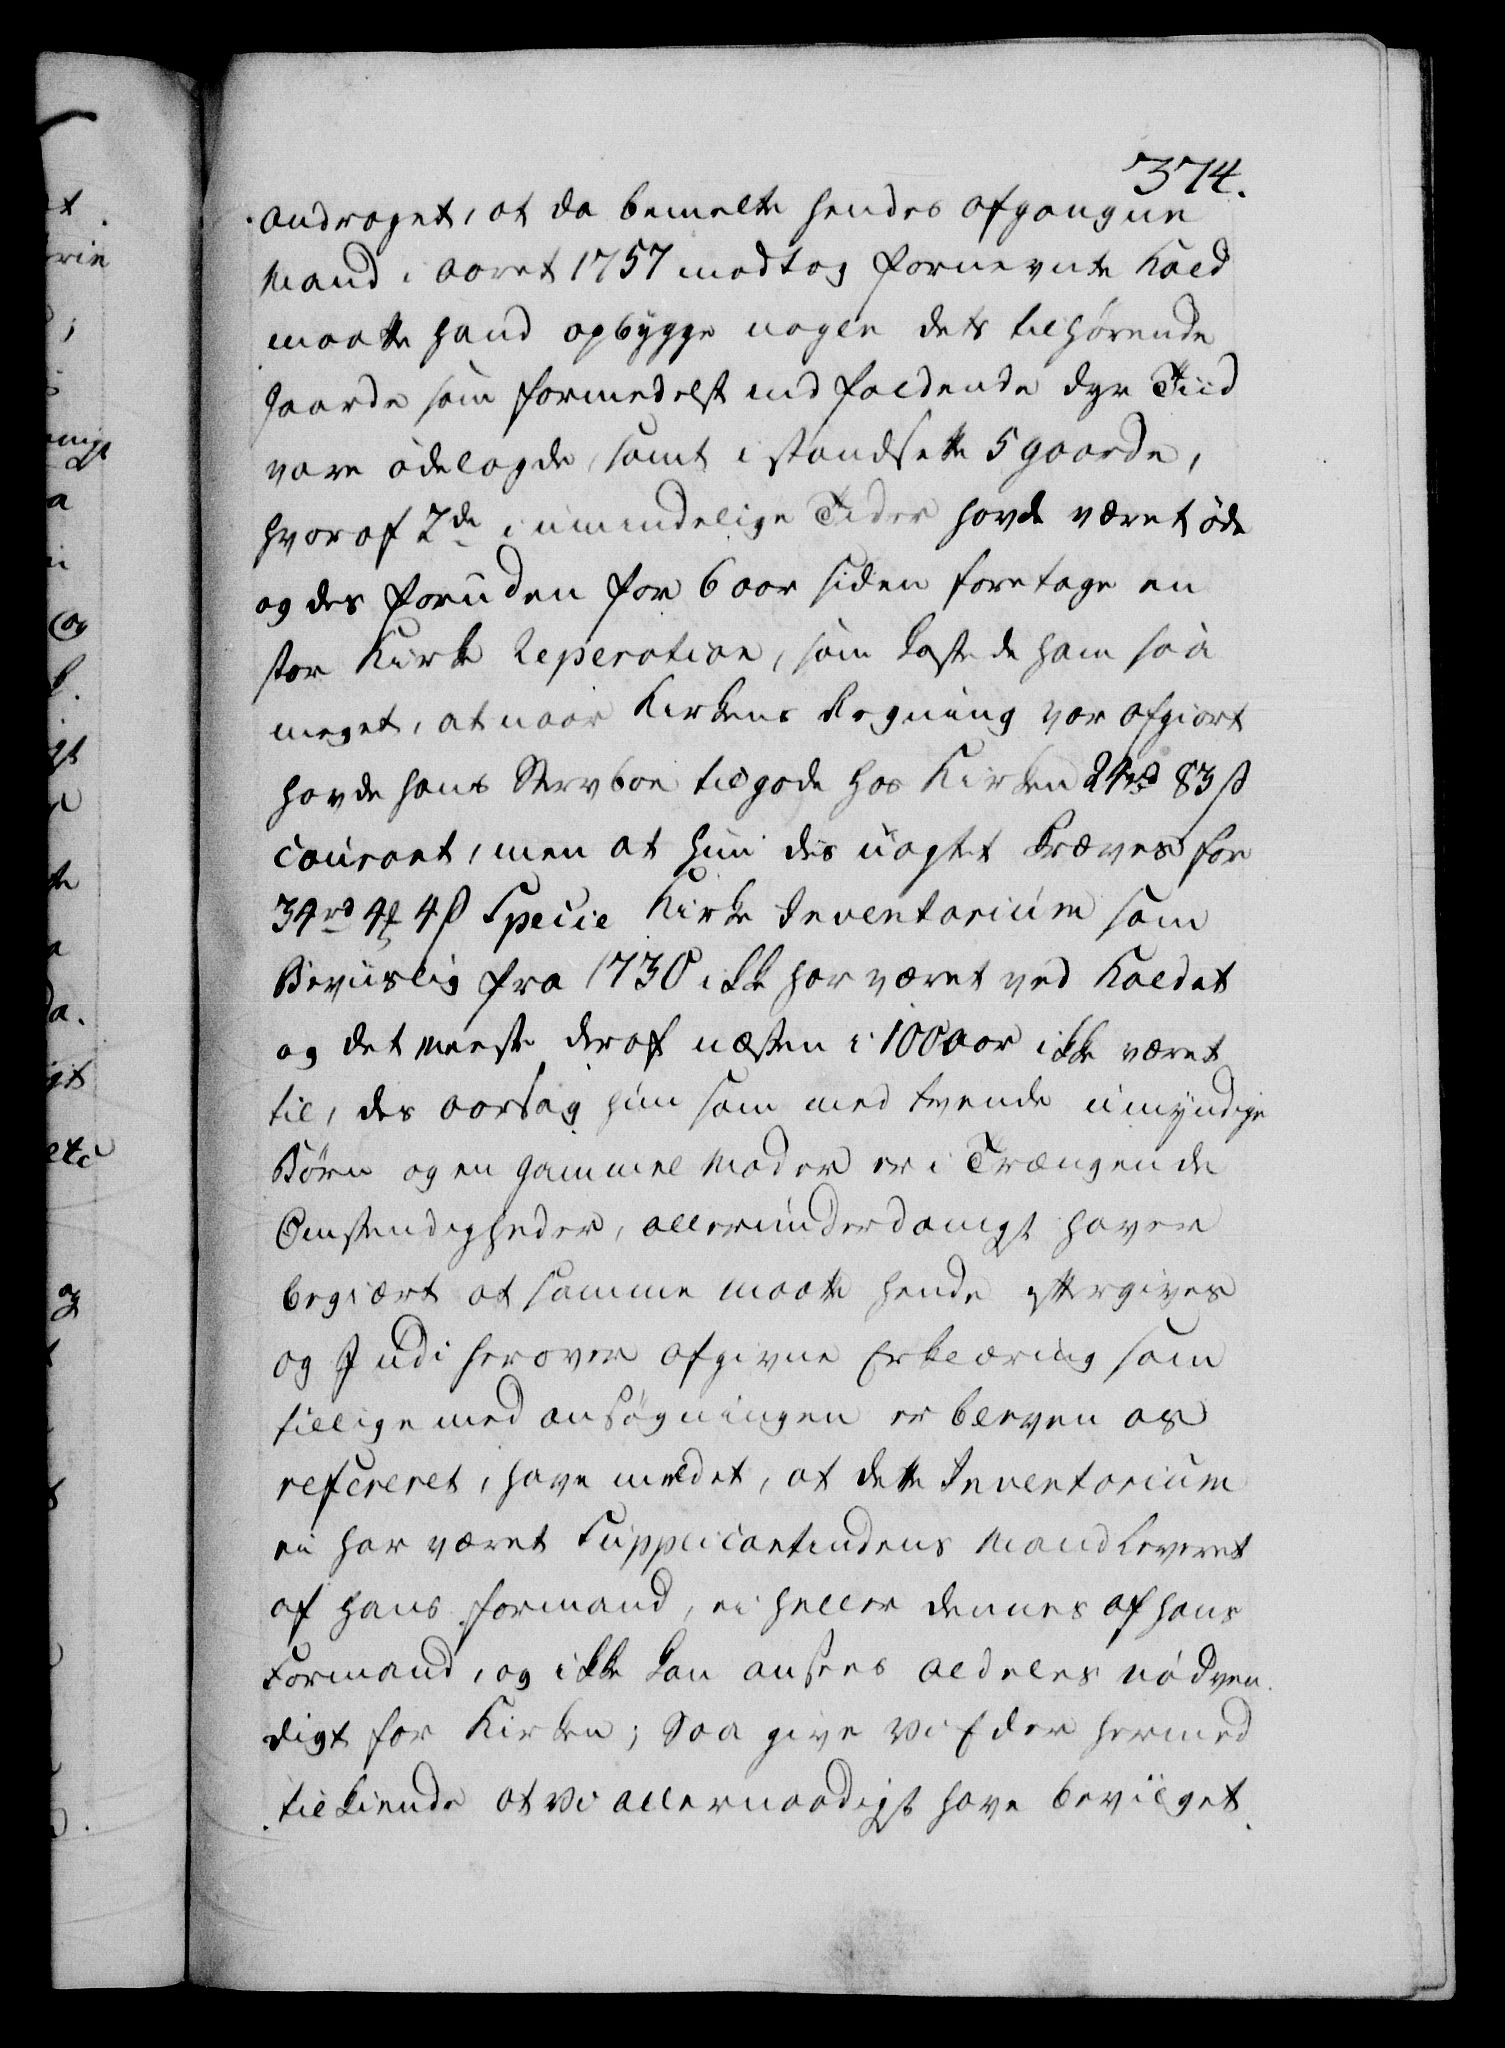 374.
andraget, at da bemelte hendes afgangne
Mand i aaret 1757 modtog fornevnte Kald
maatte hand opbygge nogle dets tilhørende
Jaarde som formedelst indfaldende dyr Tiid
vare ødelagde, samt i standsette 5 gaarde,
hvoraf 2de i umindelige Tider havde været øde
og des foruden for 6 aar siden foretage en
stor Kirke Reperation, som kostede ham saa
meget, at naar Kirkens Regning var afgiort
havde hans Stervboe tilgode hos Kirken 24rd 83 ß
courant, men at hun des uagtet Kræves for
34rd 4 ß Specie Kirke Inventarium som
Beviislig fra 1730 ikke har været ved Kaldet
og det meeste deraf næsten i 100 aar ikke været
til, des aarsag hun som med tvende umyndige
Børn og en gammel Moder er i Trængende
Omstændigheder, allerunderdanigst haver
begiært at samme maatte hende eftergives
og I udi herover afgivne Erklæring som
tillige med ansøgningen er bleven os
refereret, have meldet, at dette Inventarium
ei har været Supplicantindens Mand leveret
af hans formand, ei heller dennes af hans
Formand, og ikke kan ansees aldeles nødven
digt for Kirken; Saa give Vi Eder hermed
tilkiende at Vi allernaadigst have bevilget